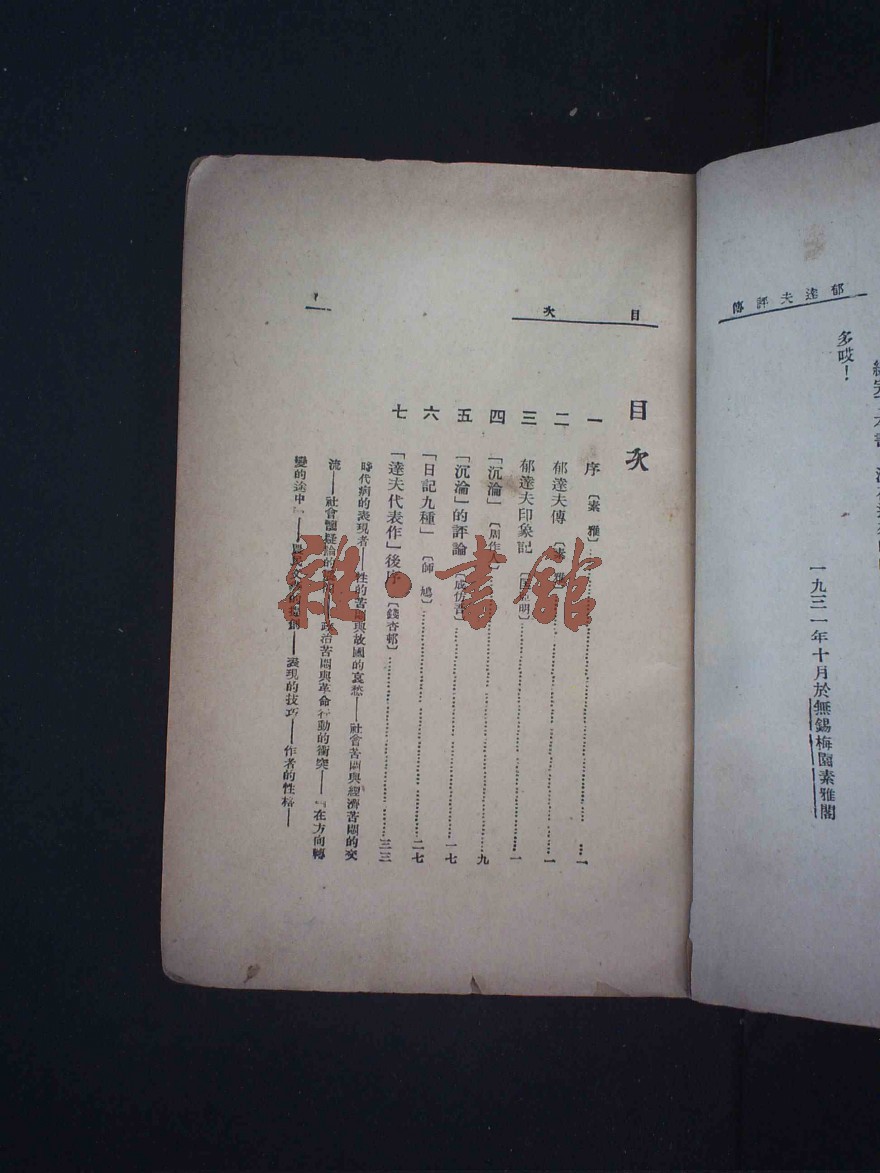 郁達夫評傳
多哎！
一九三一年十月於無錫梅園素雅閣
目次
目次
一 序〔素雅〕……一
二 郁達夫傳〔素雅〕……一
三 郁達夫印象記……一
四 「沉淪」〔周作人〕……九
五 「沉淪」的評論〔成仿吾〕……一七
六 「日記九種」〔師鳩〕……二七
七 「達夫代表作」後序〔錢杏邨〕……三三
時代病的表現者——性的苦悶與故國的哀愁——社會苦悶與經濟苦悶的交
流——社會懷疑論的——政治苦悶與革命行動的衝突——「在方向轉
變的途中」——的——表現的技巧——作者的性格——
雜·書館